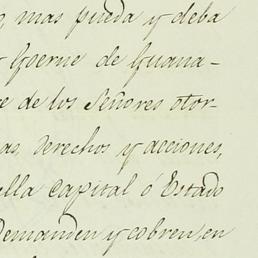 , mas pueda y deba
Goerne de Guana-
e de los Señores otor-
as, derechos y acciones,
ella Capital ó Estado
Demanden y cobren, en